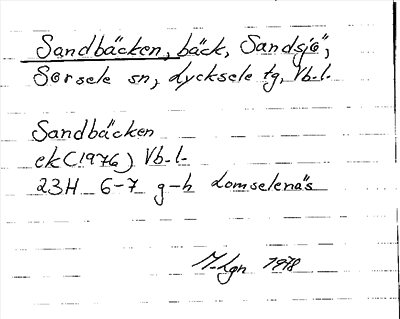 Sandbäcken, bäck, Sandsjö,
Sorsele sn, Lycksele tg, Vb-l.
Sandbäcken
ek (1976) Vb-l-
23H 6-7 g-h Lomselenäs
M-Lgn 1978